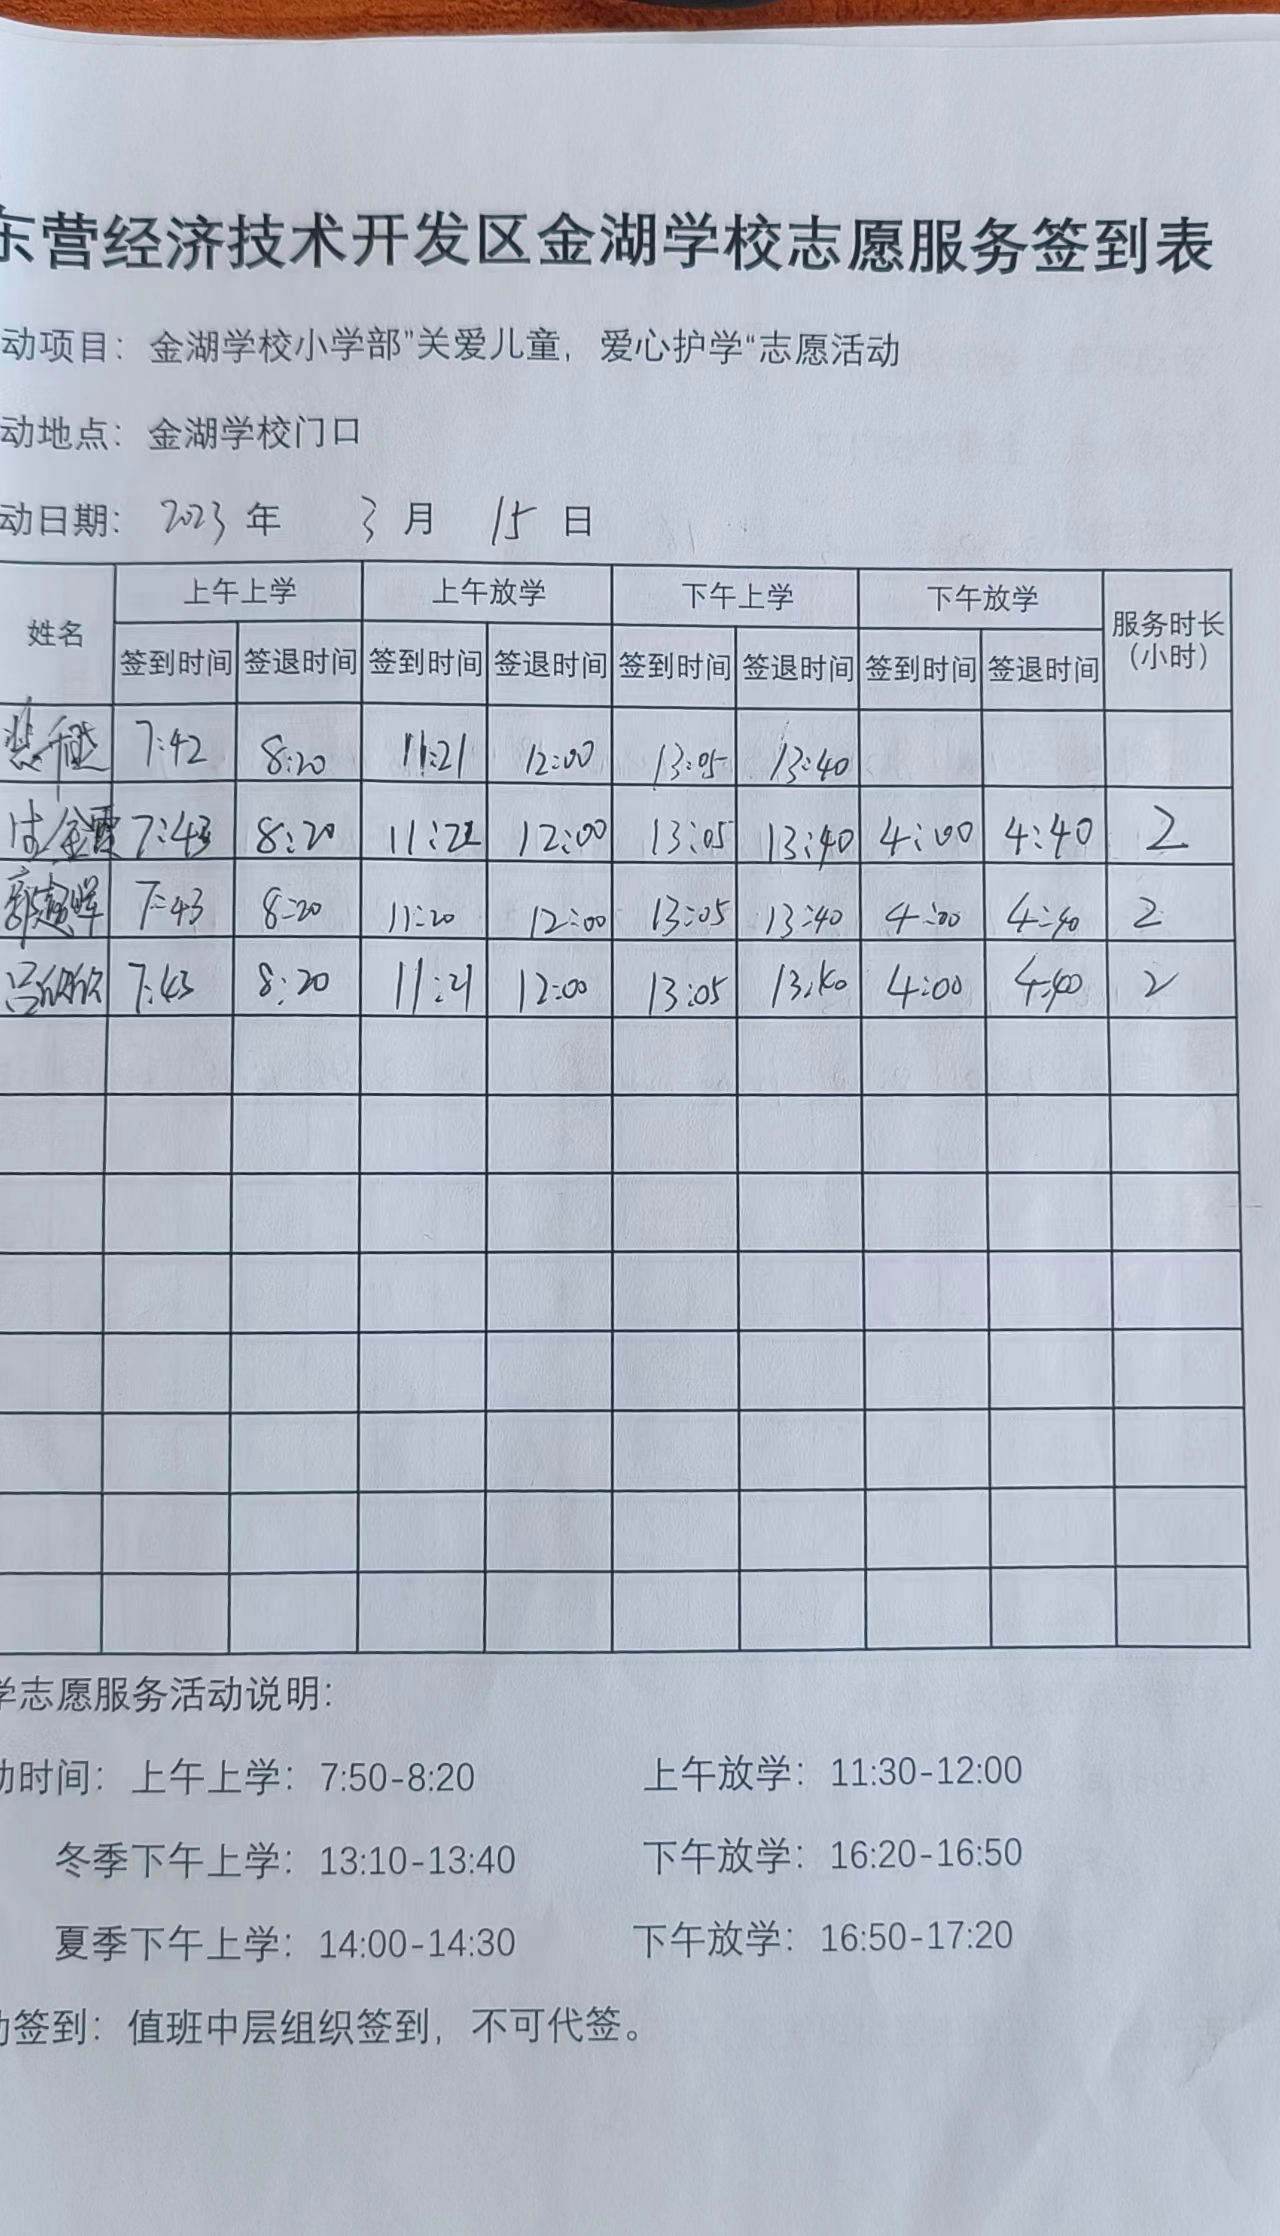 东营经济技术开发区金湖学校志愿服务签到表
动项目：金湖学校小学部”关爱儿童，爱心护学“志愿活动
动地点：金湖学校门口
动日期： 2023 年 3 月 15 日
姓名 上午上学 上午放学 下午上学 下午放学 服务时长（小时）
签到时间 签退时间 签到时间 签退时间 签到时间 签退时间 签到时间 签退时间
7:42 8:20 11:21 12:00 13:05 13:40
7:43 8:20 11:22 12:00 13:05 13:40 4:00 4:40 2
7:43 8:20 11:20 12:00 13:05 13:40 4:00 4:40 2
吕欣欣 7:43 8:20 11:21 12:00 13:05 13:40 4:00 4:40 2
学志愿服务活动说明：
动时间：上午上学：7:50-8:20 上午放学：11:30-12:00
冬季下午上学：13:10-13:40 下午放学：16:20-16:50
夏季下午上学：14:00-14:30 下午放学：16:50-17:20
动签到：值班中层组织签到，不可代签。